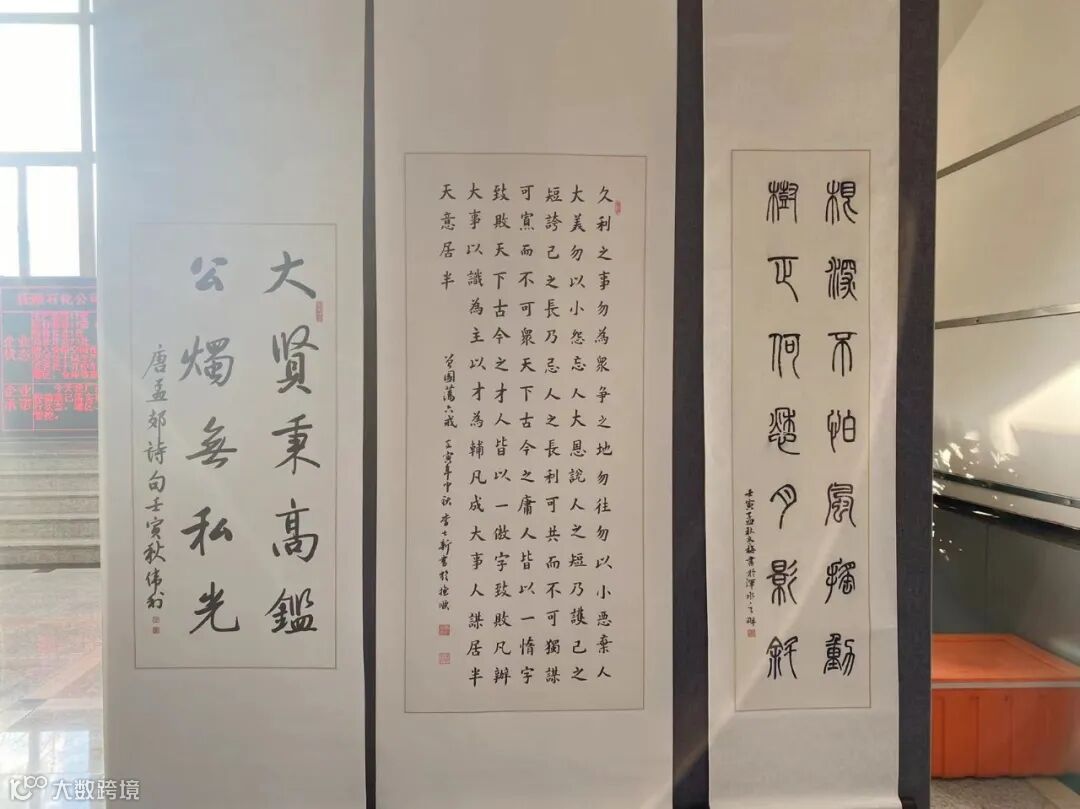 根深不怕風搖動
樹正何愁月影斜
壬寅孟秋 梅書於渾水之
久利之事勿為眾爭之地勿往勿以小惡棄人
大美勿以小怨忘人大恩說人之短乃護己之
短誇己之長乃忌人之長利可共而不可獨謀
可寡而不可眾天下古今之庸人皆以一惰字
致敗天下古今之才人皆以一傲字致敗凡辦
大事以識為主以才為輔凡成大事人謀居半
天意居半
曾國藩六戒 壬寅年中秋 李士新書於撫順
大賢秉高鑑
公燭無私光
唐孟郊詩句壬寅秋偉利
石化公司
大数跨境